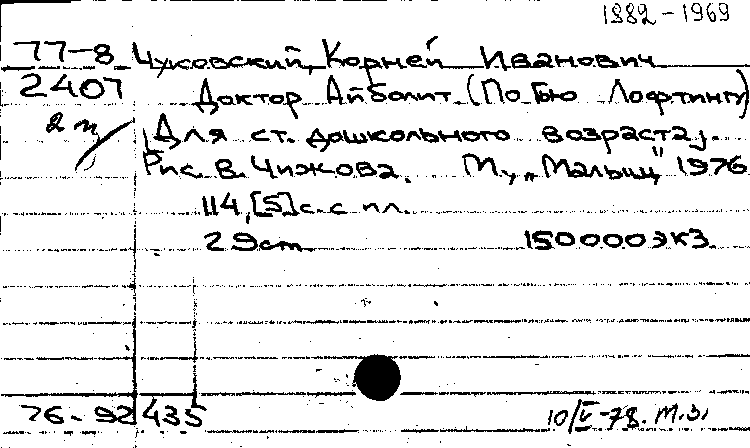 1882-1969
77-8 Чуковский, Корней Иванович
2407 Доктор Айболит (По Гью Лофтингу)
2 т. [Для ст. дошкольного возраста].
Рис. В. Чижова. М., „Малыш“ 1976
114, [5] с. с ил.
29 см 150000 экз.
76-92435 10/V-78. т.з.